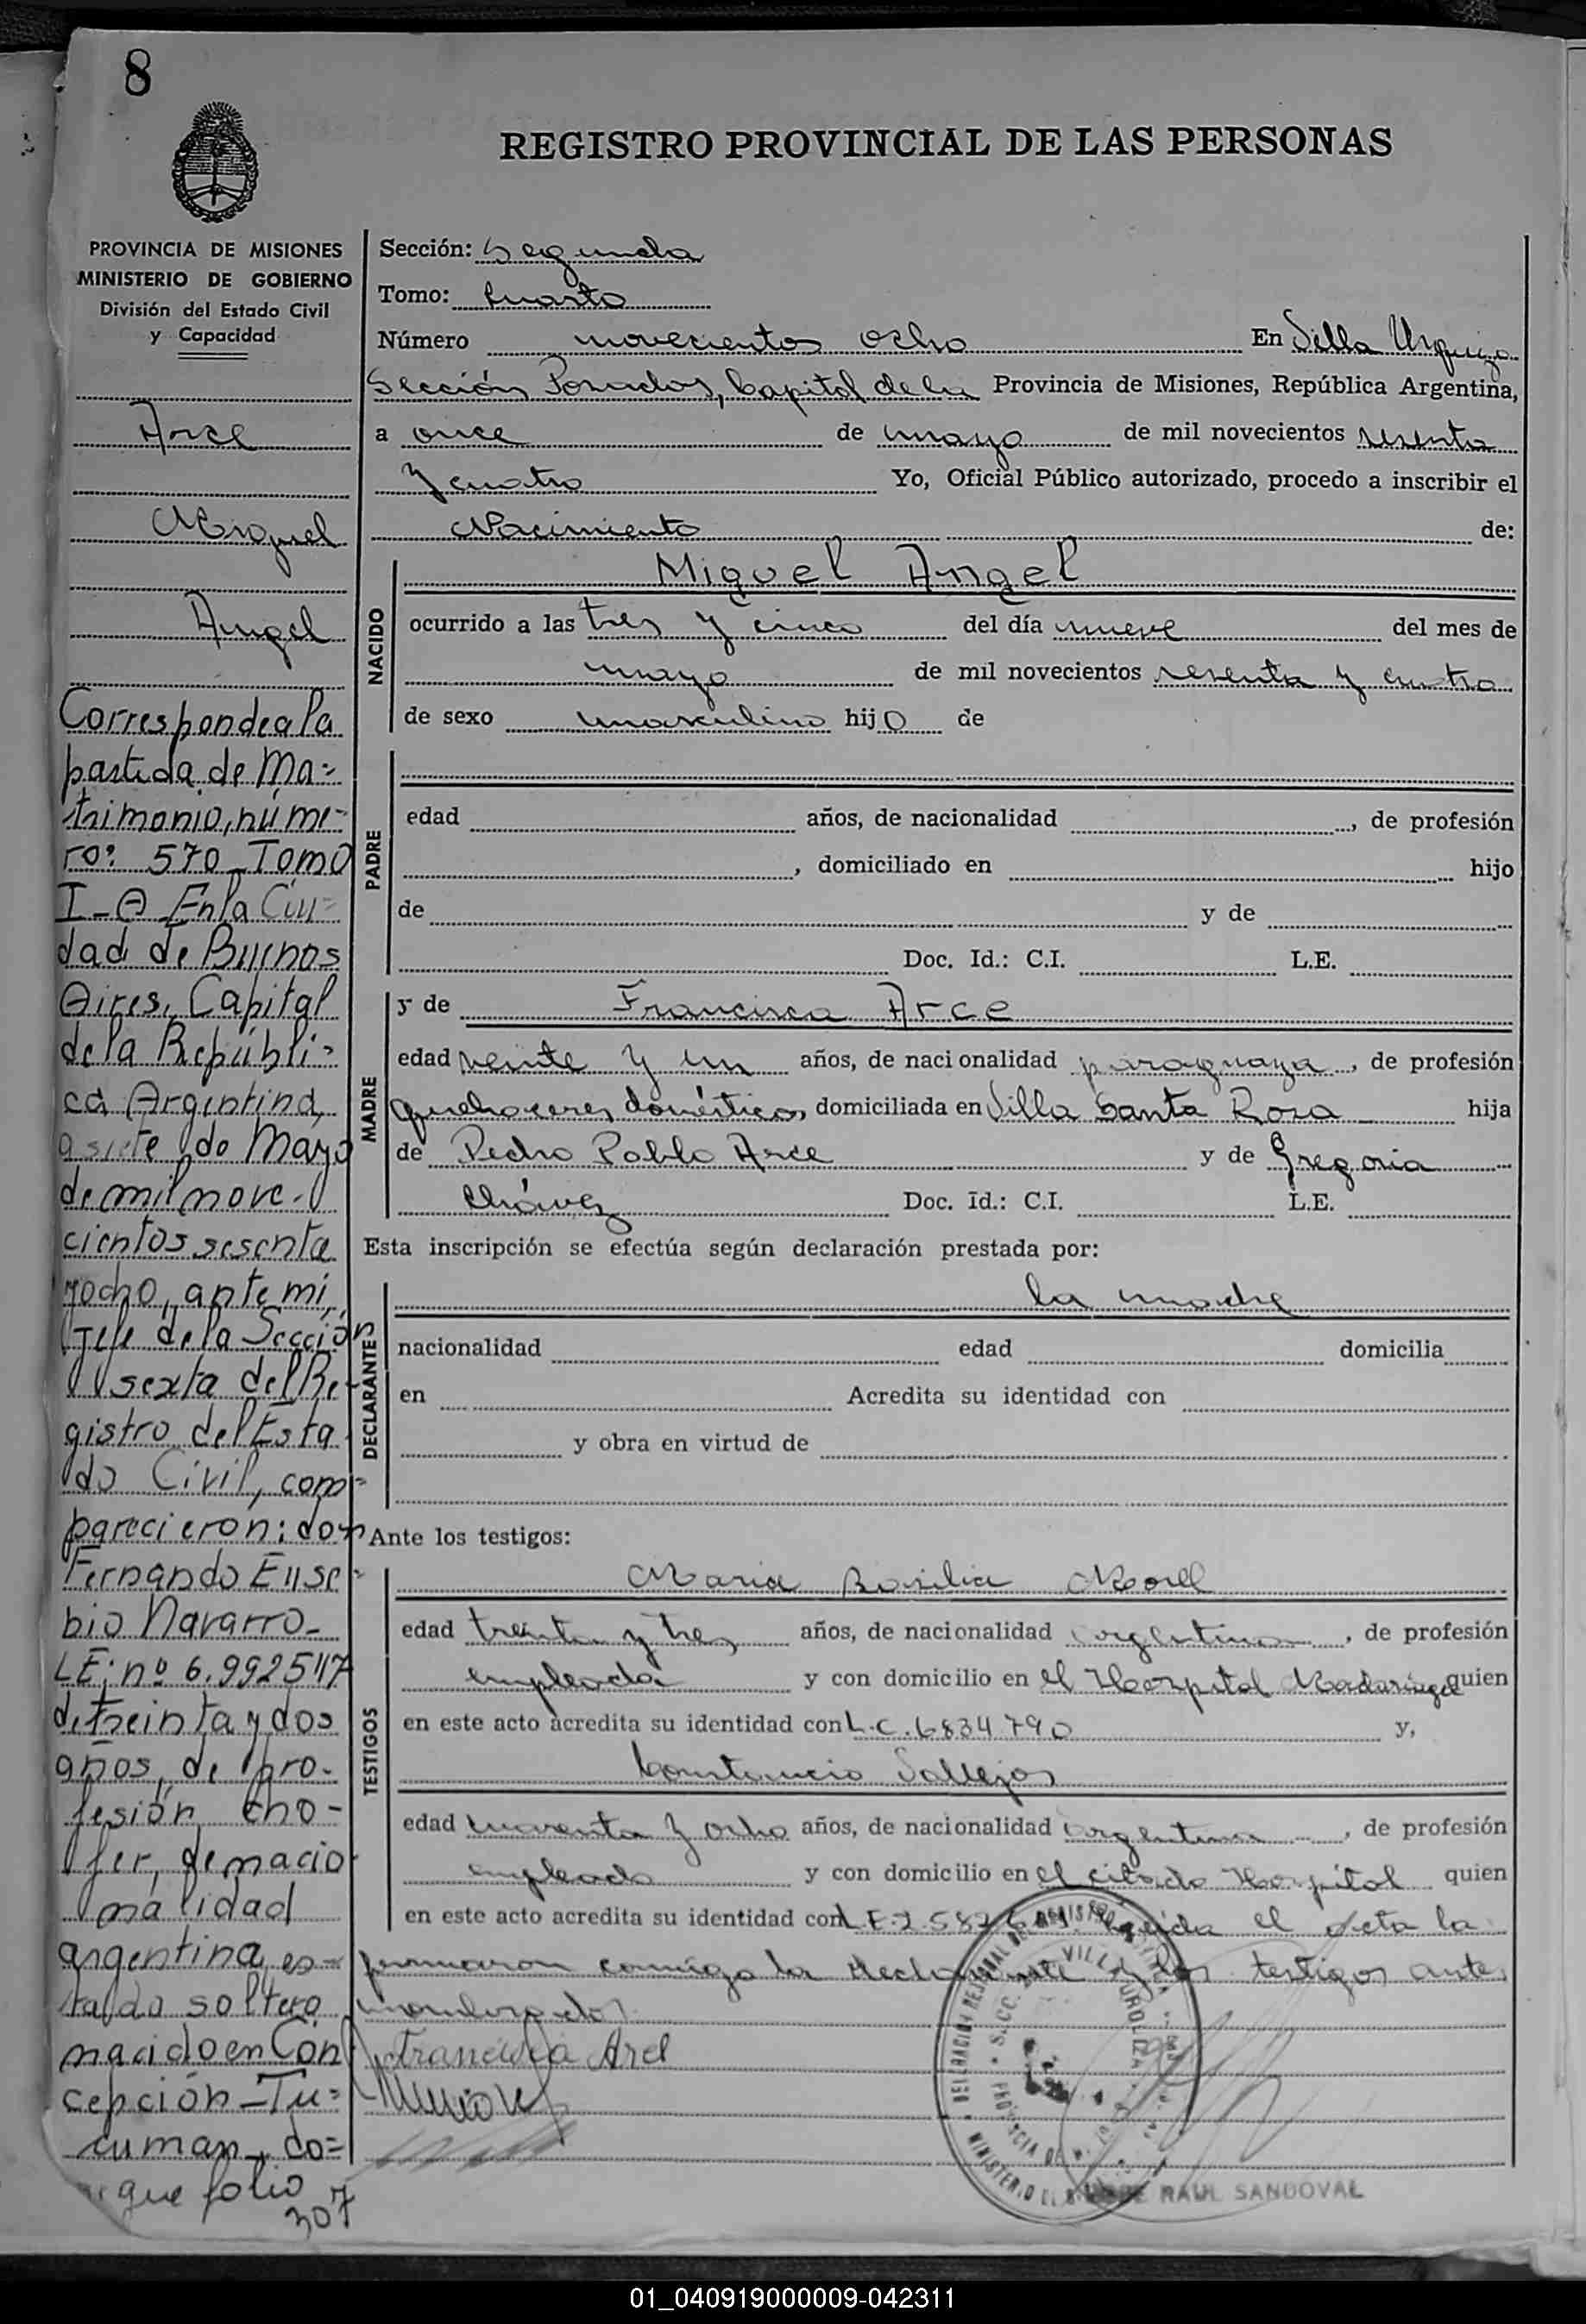 8
REGISTRO PROVINCIAL DE LAS PERSONAS
PROVINCIA DE MISIONES
MINISTERIO DE GOBIERNO
División del Estado Civil
y Capacidad
Arce
Miguel
Angel
Corresponde a la
partida de Ma=
trimonio, núme-
ro: 570 Tomo
I-A En la Ciu=
dad de Buenos
Aires, Capital
de la Repúbli=
ca Argentina,
a siete de Mayo
de mil nove-
cientos sesenta
y ocho, ante mi,
Jefe de la Sección
sexta del Re-
gistro del Esta
do Civil, com=
parecieron: don
Fernando Euse-
bio Navarro-
LE: nº 6.992517
de treinta y dos
años, de pro-
fesión cho-
fer, de nacio
nalidad
argentina, es=
tado soltero
nacido en Con
cepción-Tu=
cuman, do=
que folio
307
Sección: Segunda
Tomo: Cuarto
Número novecientos ocho En Villa Urquiza
Sección Posadas, Capital de la Provincia de Misiones, República Argentina,
a once de mayo de mil novecientos sesenta
y cuatro Yo, Oficial Público autorizado, procedo a inscribir el
Nacimiento de:
NACIDO
Miguel Angel
ocurrido a las tres y cinco del día nueve del mes de
mayo de mil novecientos sesenta y cuatro
de sexo masculino hijo de
PADRE
edad años, de nacionalidad , de profesión
, domiciliado en hijo
de y de
Doc. Id.: C.I. L.E.
MADRE
y de Francisca Arce
edad veinte y un años, de nacionalidad paraguaya, de profesión
quehaceres domésticos, domiciliada en Villa Santa Rosa hija
de Pedro Pablo Arce y de Gregoria
Chávez Doc. Id.: C.I. L.E.
Esta inscripción se efectúa según declaración prestada por:
DECLARANTES
la madre
nacionalidad edad domicilia
en Acredita su identidad con
y obra en virtud de
Ante los testigos:
TESTIGOS
Maria Basilia Morel
edad treinta y tres años, de nacionalidad argentina, de profesión
empleada y con domicilio en el Hospital Madariaga quien
en este acto acredita su identidad con L.C. 6834790 y,
Constancio Vallejos
edad cuarenta y ocho años, de nacionalidad argentina, de profesión
empleado y con domicilio en el citado Hospital quien
en este acto acredita su identidad con L.E. 2.582 Leída el acta la
firmaron conmigo la declarante y los testigos ante
nombrados.
Francisca Arce
RAUL SANDOVAL
01_040919000009-042311